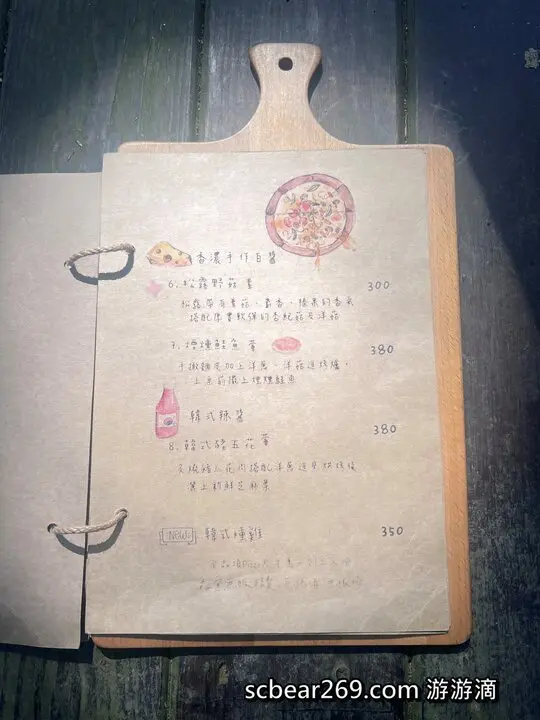 香濃手作白醬
6. 松露野菇 葷 300
松露帶有蕈菇、麝香、榛果的香氣
搭配厚實軟彈的杏鮑菇及洋菇
7. 煙燻鮭魚 葷 380
手揪麵皮加上洋蔥、洋菇進烤爐,
上桌前擺上煙燻鮭魚
韓式辣醬
8. 韓式豬五花 葷 380
炙燒豬五花肉搭配洋蔥進窯烘烤後
灑上新鮮芝麻葉
NEW 韓式燻雞 350
scbear269.com 游游滴